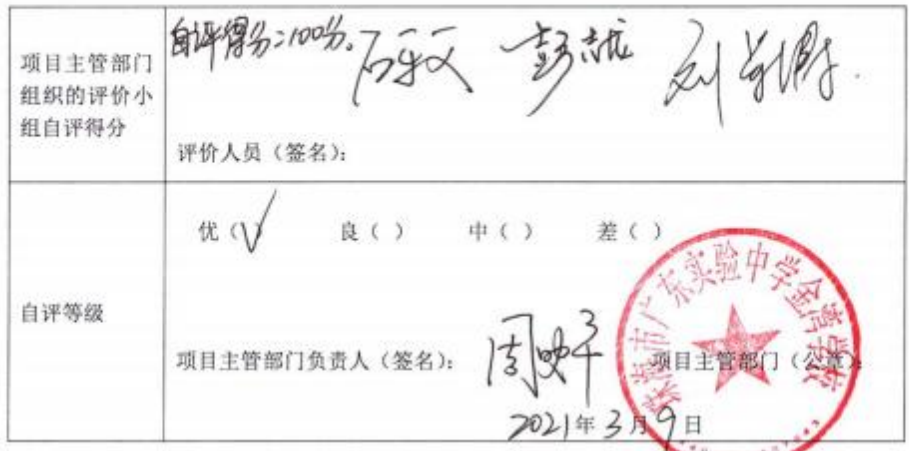 项目主管部门
组织的评价小
组自评得分
自评得分:100分。
评价人员（签名）：
自评等级
优（√） 良（ ） 中（ ） 差（ ）
项目主管部门负责人（签名）： 项目主管部门（公章）：
2021年3月9日
珠海市广东实验中学金湾学校